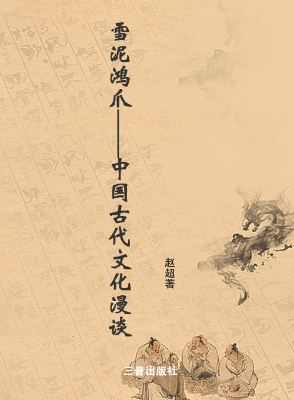 雪泥鸿爪——中国古代文化漫谈
赵超著
三晋出版社